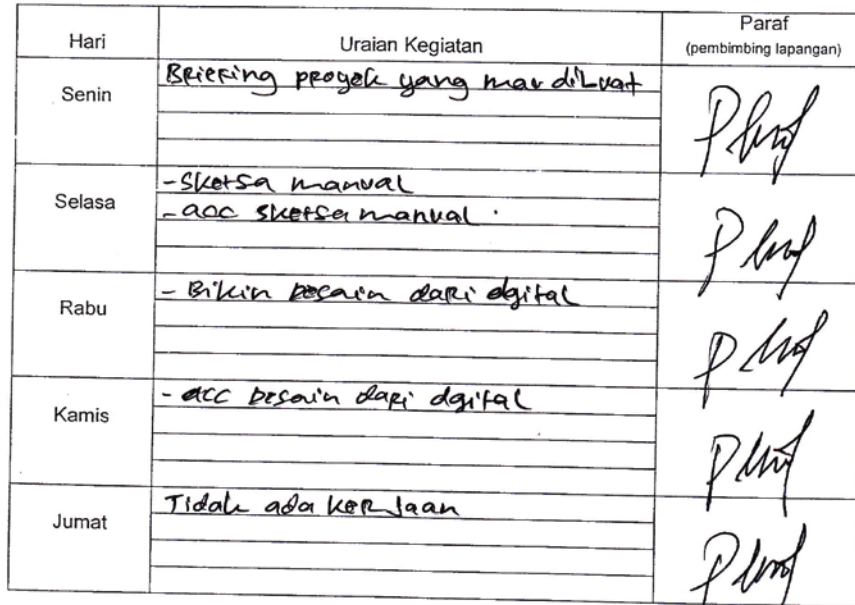 Hari
Uraian Kegiatan
Paraf
(pembimbing lapangan)
Senin
Briefing proyek yang mau dibuat
Selasa
- Sketsa manual
- acc sketsa manual.
Rabu
- Bikin Desain dari dgital
Kamis
- acc Desain dari dgital
Jumat
Tidak ada kerjaan